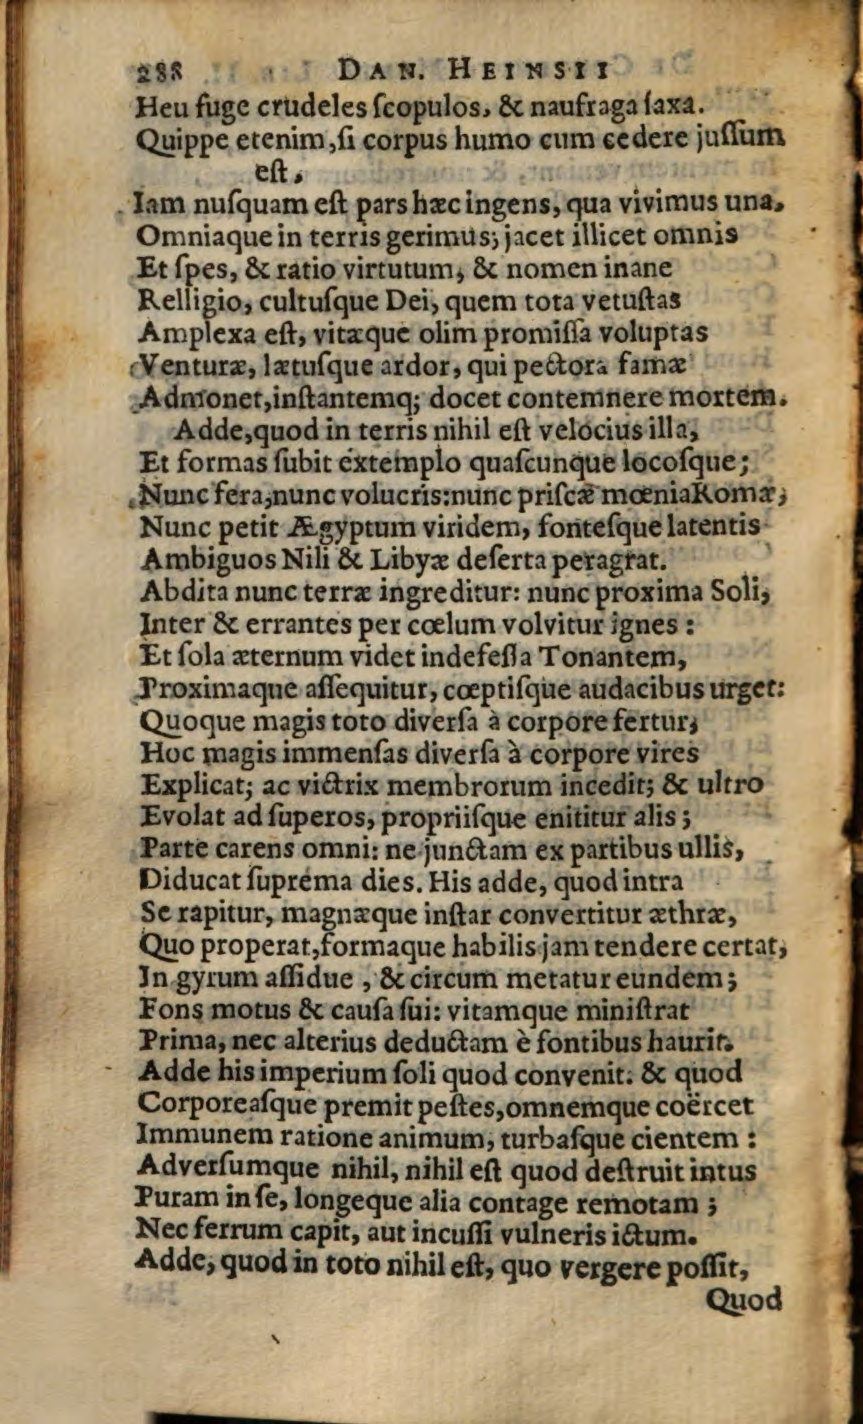 288 DAN. HEINSII
Heu fuge crudeles ſcopulos, & naufraga ſaxa.
Quippe etenim, ſi corpus humo cum cedere juſſum
eſt,
Iam nuſquam eſt pars hæc ingens, qua vivimus una,
Omniaque in terris gerimus; jacet illicet omnis
Et ſpes, & ratio virtutum, & nomen inane
Relligio, cultuſque Dei, quem tota vetuſtas
Amplexa eſt, vitæque olim promiſſa voluptas
Venturæ, lætuſque ardor, qui pectora famæ
Admonet, inſtantemq; docet contemnere mortem.
Adde, quod in terris nihil eſt velocius illa,
Et formas ſubit extemplo quaſcunque locoſque;
Nunc fera, nunc volucris: nunc priſcæ mœnia Romæ,
Nunc petit Ægyptum viridem, fonteſque latentis
Ambiguos Nili & Libyæ deſerta peragrat.
Abdita nunc terræ ingreditur: nunc proxima Soli,
Inter & errantes per cœlum volvitur ignes:
Et ſola æternum videt indefeſſa Tonantem,
Proximaque aſſequitur, cœptiſque audacibus urget:
Quoque magis toto diverſa à corpore fertur,
Hoc magis immenſas diverſa à corpore vires
Explicat; ac victrix membrorum incedit; & ultro
Evolat ad ſuperos, propriiſque enititur alis;
Parte carens omni: ne junctam ex partibus ullis,
Diducat ſuprema dies. His adde, quod intra
Se rapitur, magnæque inſtar convertitur æthræ,
Quo properat, formaque habilis jam tendere certat,
In gyrum aſſidue, & circum metatur eundem;
Fons motus & cauſa ſui: vitamque miniſtrat
Prima, nec alterius deductam è fontibus haurit.
Adde his imperium ſoli quod convenit. & quod
Corporeaſque premit peſtes, omnemque coërcet
Immunem ratione animum, turbaſque cientem:
Adverſumque nihil, nihil eſt quod deſtruit intus
Puram in ſe, longeque alia contage remotam;
Nec ferrum capit, aut incuſſi vulneris ictum.
Adde, quod in toto nihil eſt, quo vergere poſſit,
Quod